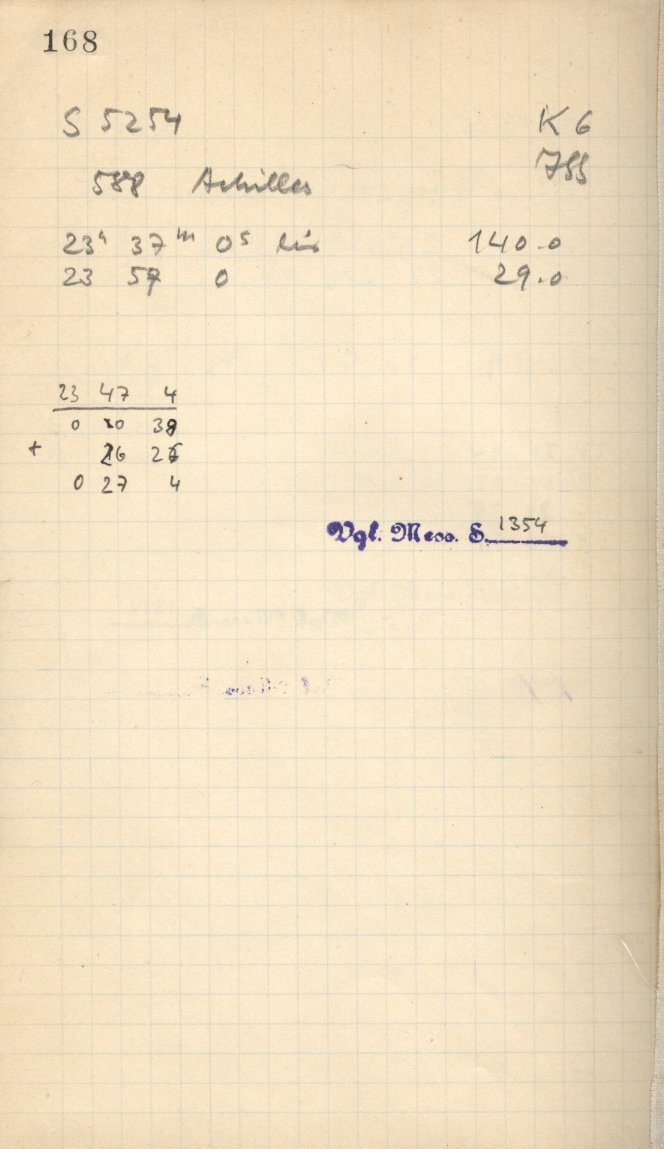 168
S 5254 K 6
588 Achilles
23h 37m 0s bis 140.0
23 57 0 29.0
23 47 4
0 10 38
+ 16 26
0 27 4
Vgl. Mess. S. 1354